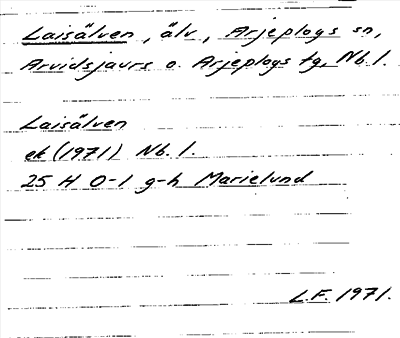 Laisälven, älv, Arjeplogs sn,
Arvidsjaurs o. Arjeplogs tg, Nb. l.
Laisälven
ek (1971) Nb. l.
25 H 0-1 g-h Marielund
L.F. 1971.